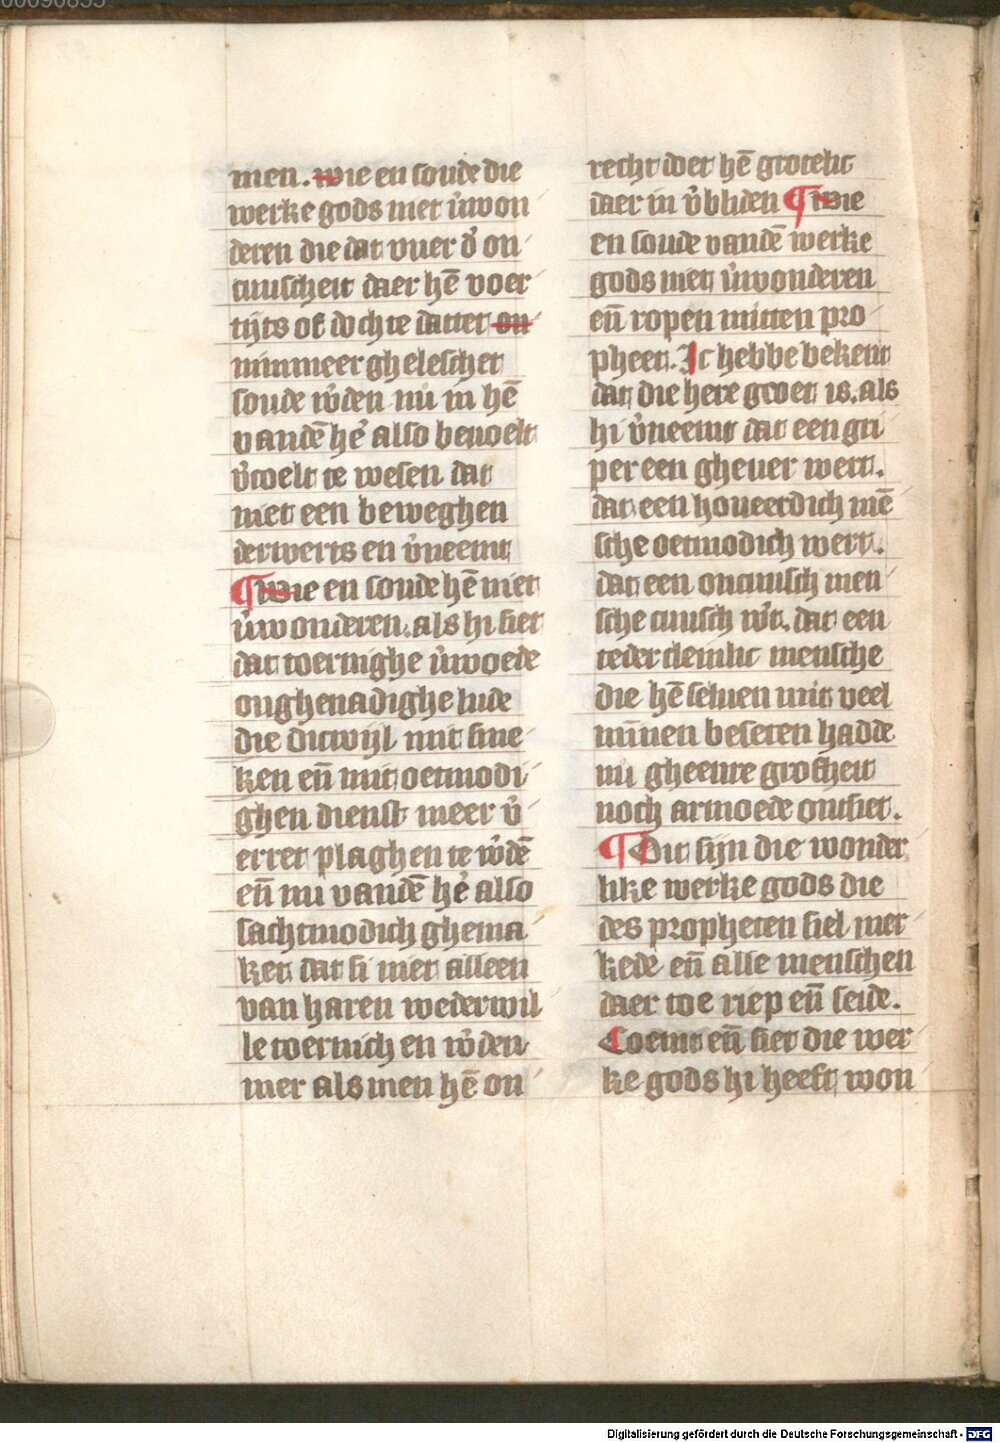 men. wie en soude die
werke gods niet v̉won
deren die dat vuer d̉ on
cuuscheit daer hē voer
tijts of dochte dattet on
nimmeer ghelesschet
soude w̉den nu in hē
vandē hē also bevoelt
v̉coelt te wesen dat
niet een beweghen
derwerts en v̉neemt
¶ wie en soude hē niet
v̉wonderen. als hi siet
dat toernighe v̉woede
onghenadighe lude
die dicwijl mit sme
ken en̄ mit oetmodi
ghen dienst meer v̉
erret plaghen te w̉dē
en̄ nu vandē hē also
sachtmodich ghema
ket dat si niet alleen
van haren wederwil
le toernich en w̉den
mer als men hē on
recht doet hē grotelic
daer in v̉bliden ¶ wie
en soude vandē werke
gods niet v̉wonderen
en̄ ropen mitten pro
pheet. Ic hebbe bekent
dat die here groet is. als
hi v̉neemt dat een gri
per een ghever wert.
dat een hoveerdich mē
sche oetmodich wert.
dat een oncuusch men
sche cuusch w̉t. dat een
teder clenlic mensche
die hē selven mit veel
minnen beseten hadde
nu gheenre grofheit
noch armoede ontsiet.
¶ Dit sijn die wonder
like werke gods die
des propheten siel mer
kede en̄ alle menschen
daer toe riep en̄ seide.
Coemt en̄ siet die wer
ke gods hi heeft won
Digitalisierung gefördert durch die Deutsche Forschungsgemeinschaft - DFG